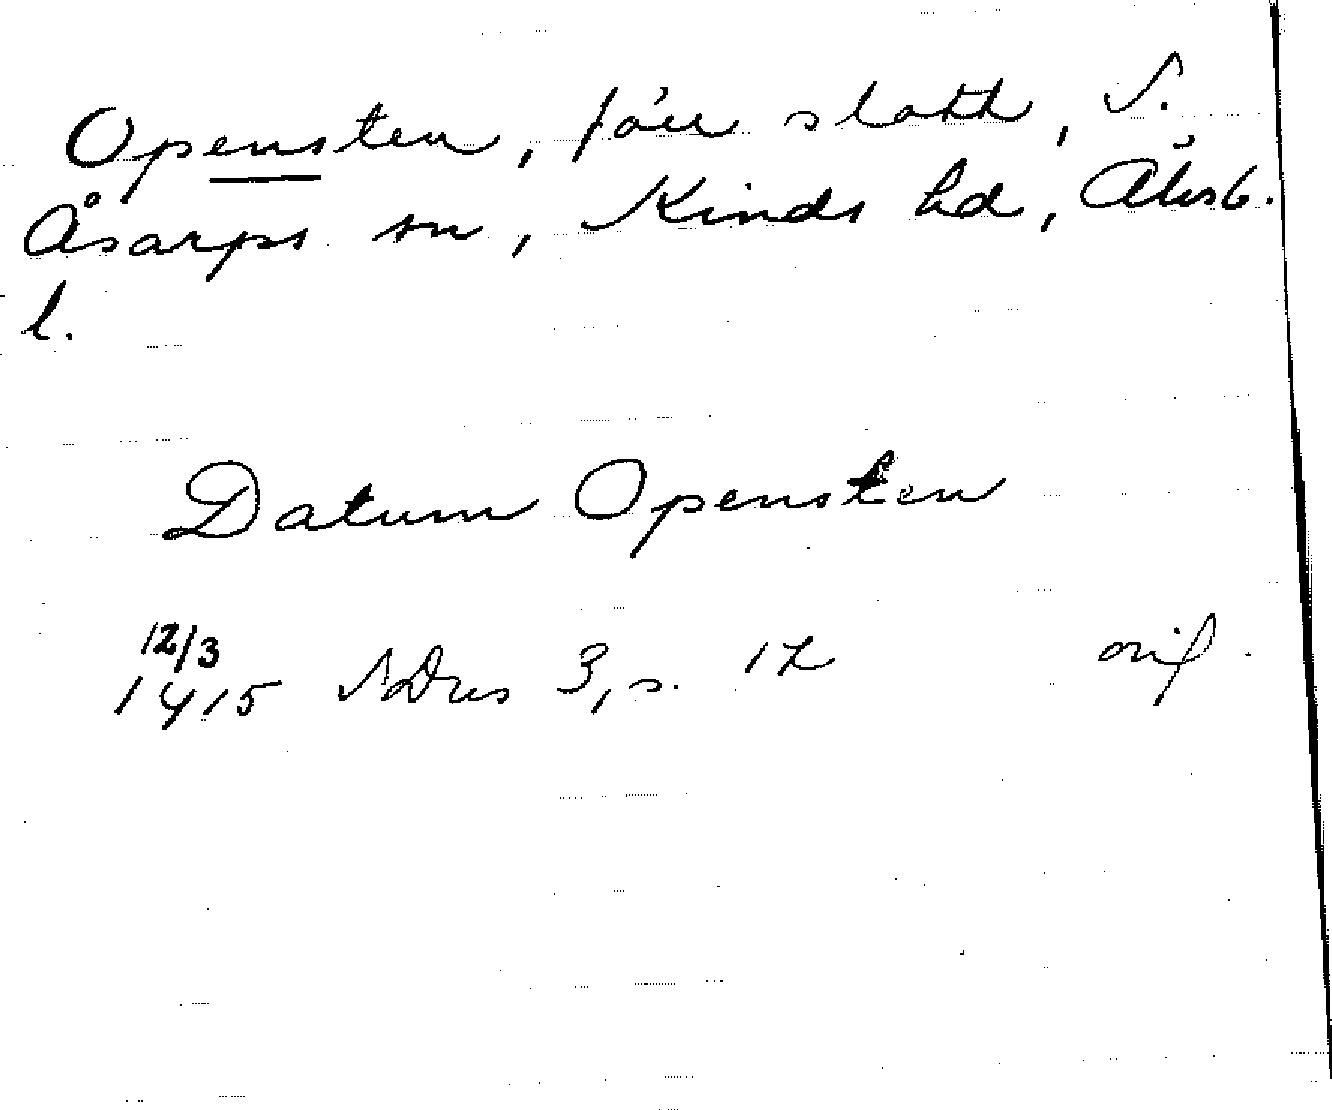 Opensten, förr slott, S.
Åsarps sn, Kinds hd, Älvsb.
l.
Datum Opensten
12/3
1415 SDns 3, s. 12 orig.